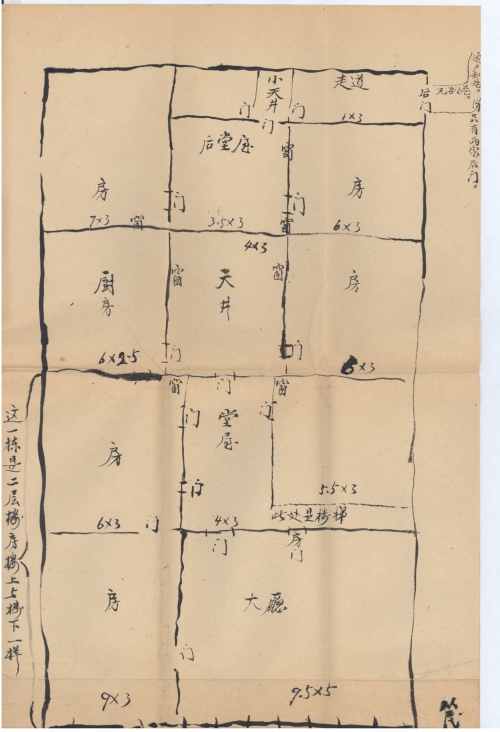 小天井
走道
门
门
门
后门
1×3
后堂屋
窗
房
门
门
房
7×3
窗
3.5×3
窗
6×3
4×3
厨房
窗
天井
窗
房
6×2.5
门
门
6×3
窗
门
窗
门
堂屋
门
房
门
5.5×3
6×3
门
4×3
此处是楼梯
门
房门
房
大厅
门
9×3
9.5×5
这一栋是二层楼房楼上与楼下一样
只有两家后门。